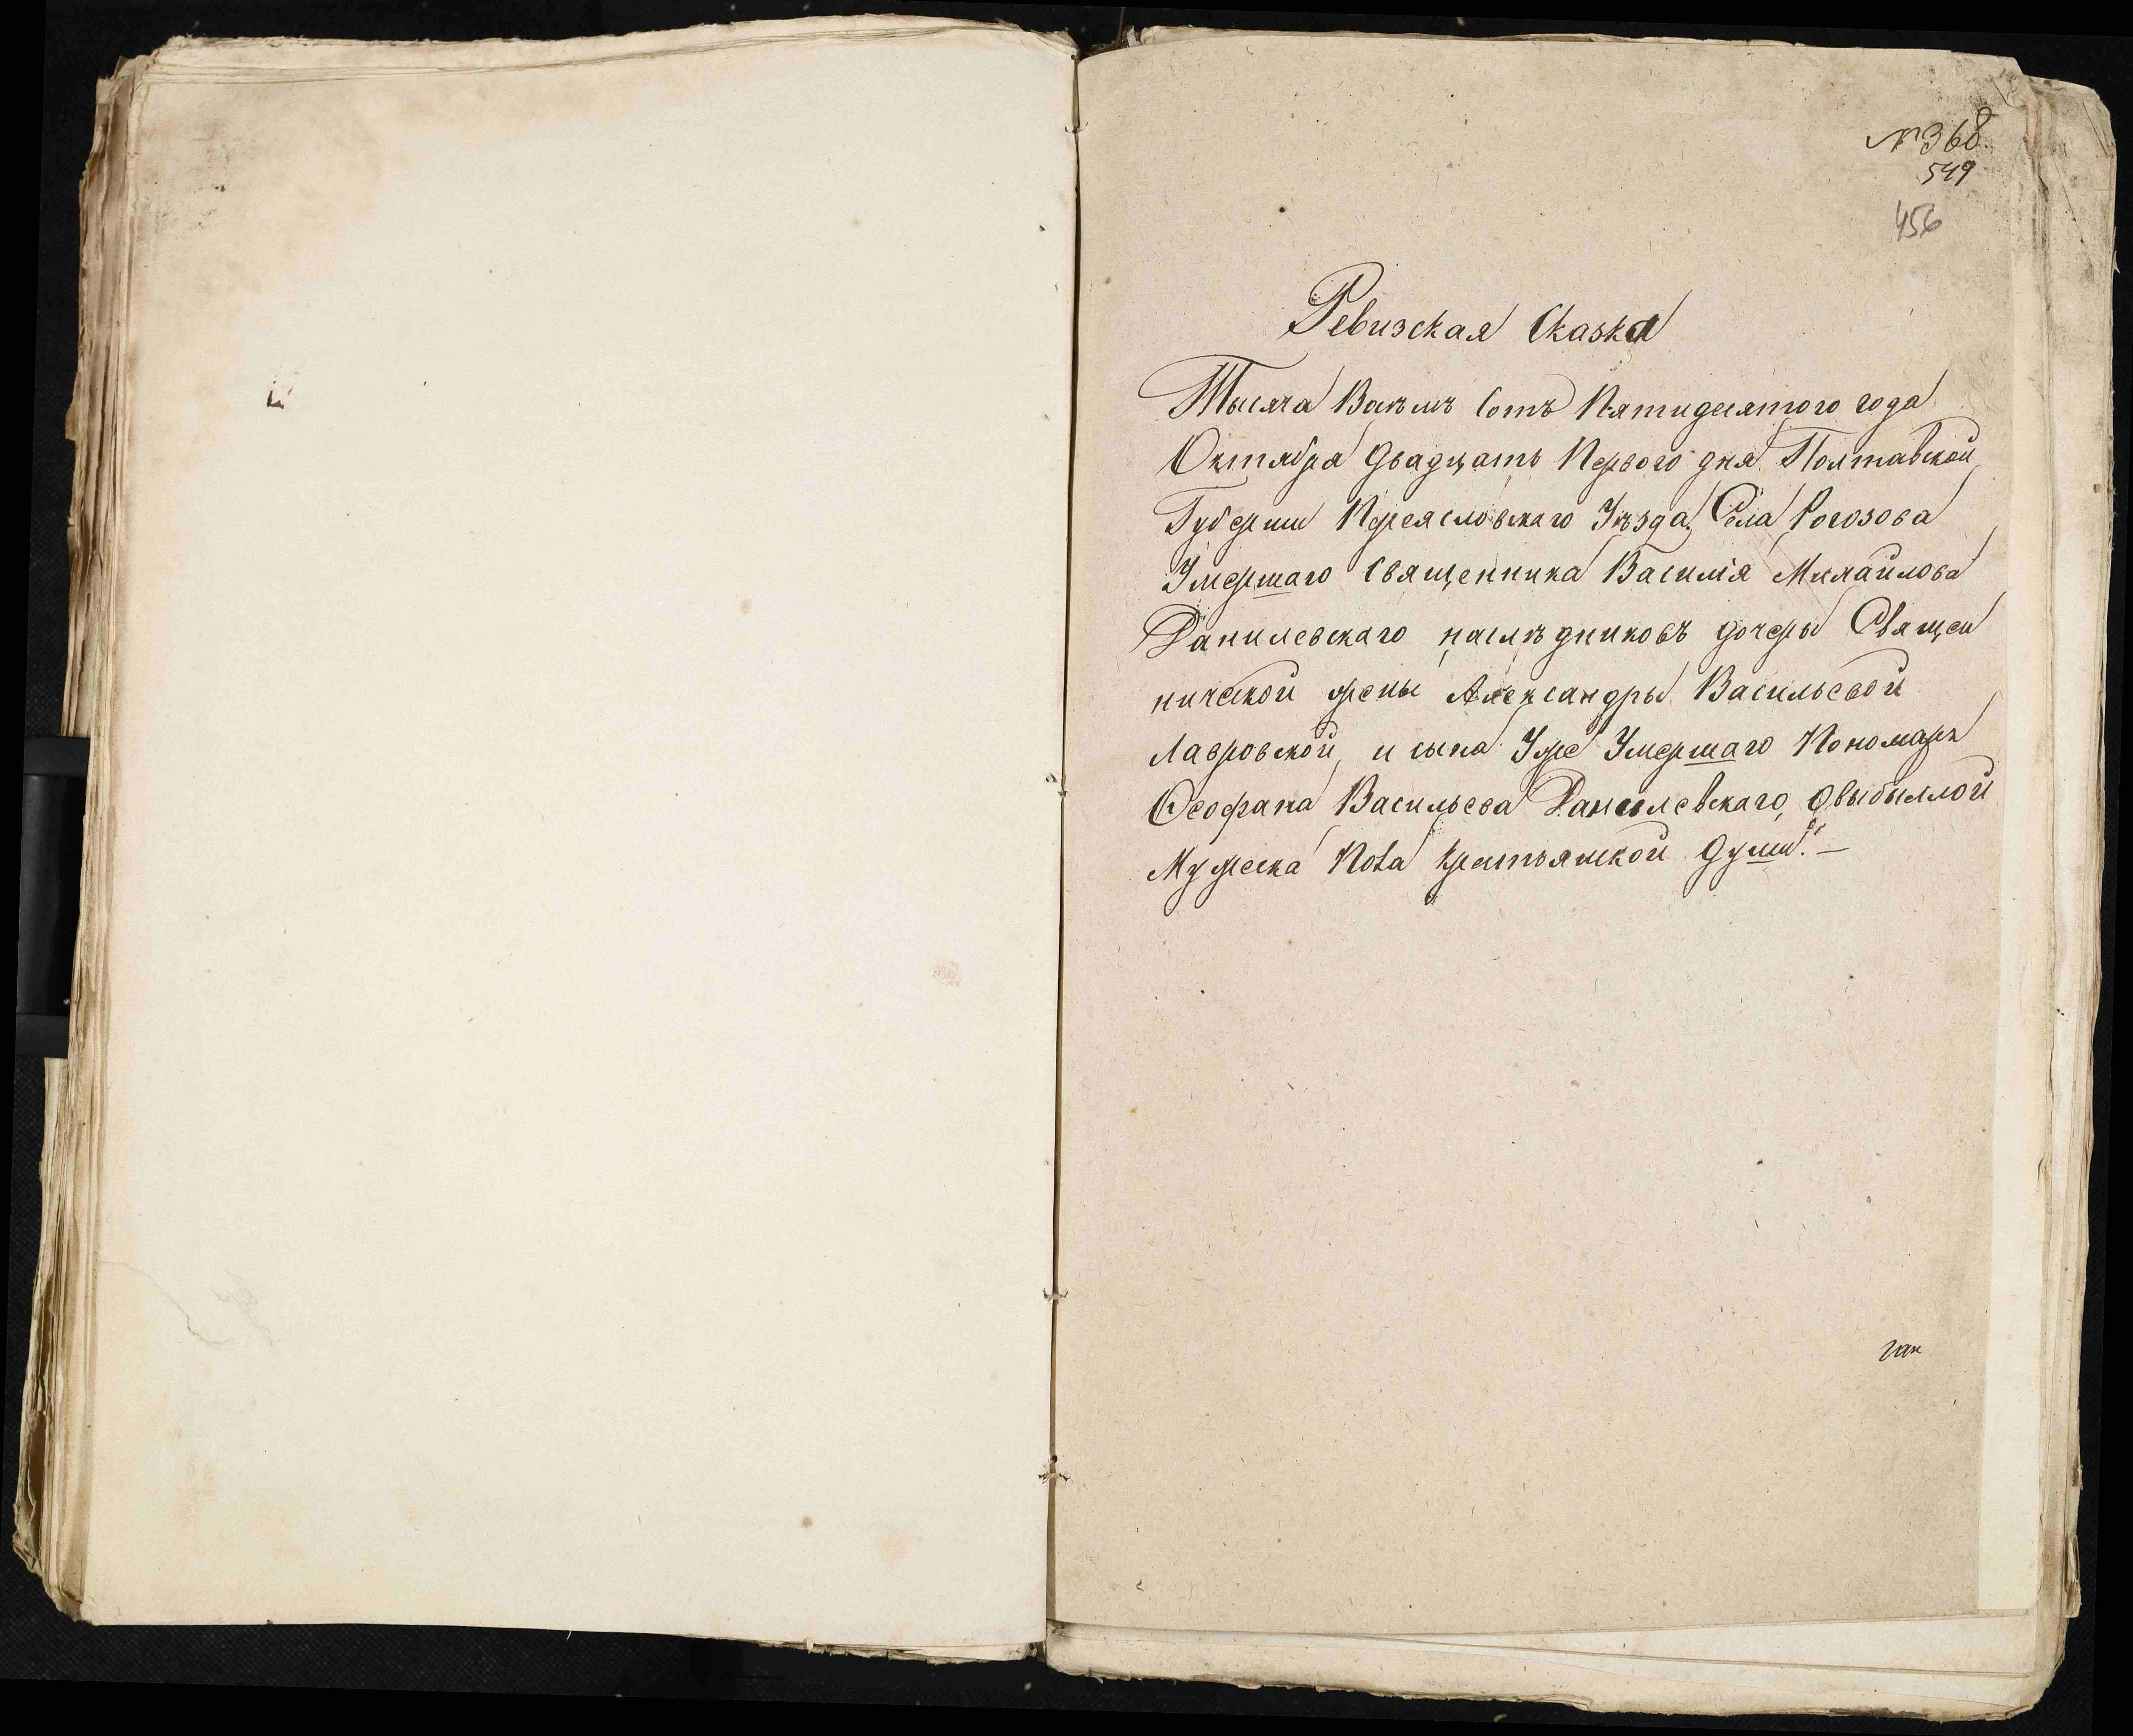 № 368
549
456
Ревизская Сказка
Тысяча Восѣмъ Сотъ Пятидесятого года
Октября двадцать Первого дня Полтавской
Губернии Переясловскаго Уѣзда, Села Рогозова
Умершаго Священника Василія Михайлова
Данилевскаго наслѣдниковъ дочеры Священ
нической жены Александры Васильевой
Лавровской, и сына Уже Умершаго Пономаря
Феофана Васильева Данилевскаго, О выбылой
Мужеска Пола крестьянской души. —